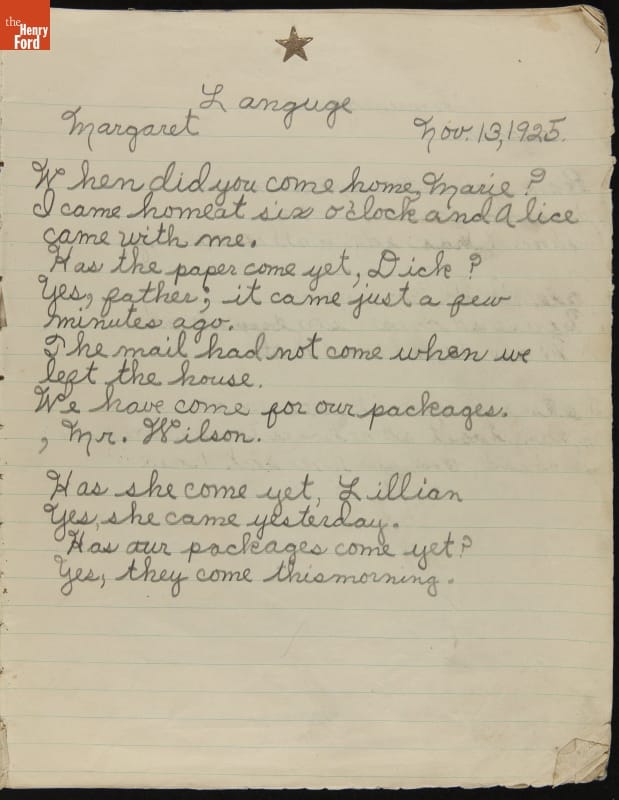 the
Henry
Ford
Languge
Margaret Nov. 13, 1925.
When did you come home, Marie?
I came homeat six o'clock and Alice
came with me.
Has the paper come yet, Dick?
Yes, father; it came just a few
minutes ago.
The mail had not come when we
left the house.
We have come for our packages.
, Mr. Wilson.
Has she come yet, Lillian
Yes, she came yesterday.
Has our packages come yet?
Yes, they come thismorning.